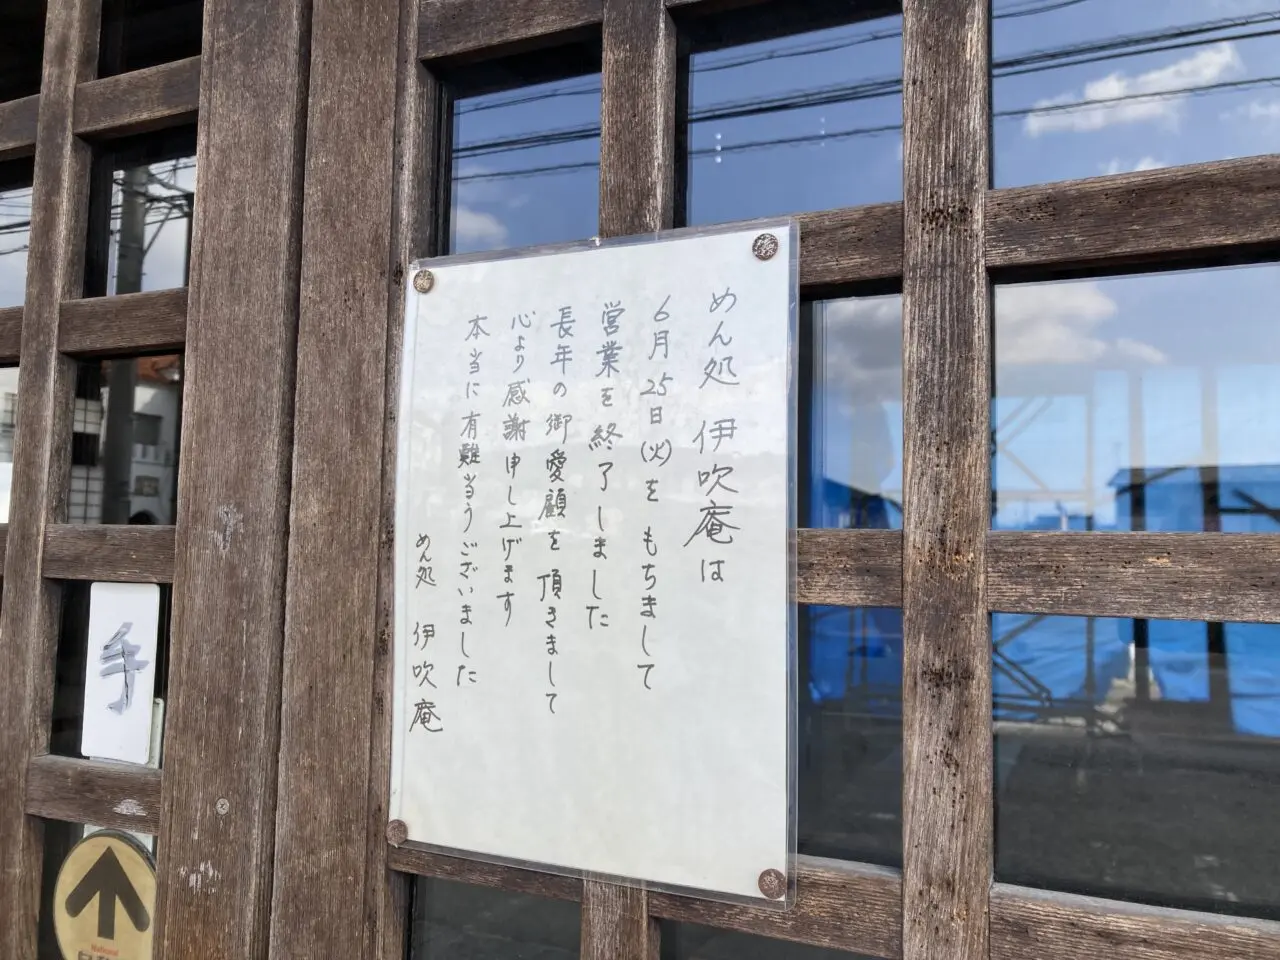 めん処 伊吹庵は
6月25日(火)を もちまして
営業を終了しました
長年の御愛顧を頂きまして
心より感謝申し上げます
本当に有難うございました
めん処 伊吹庵
手
National